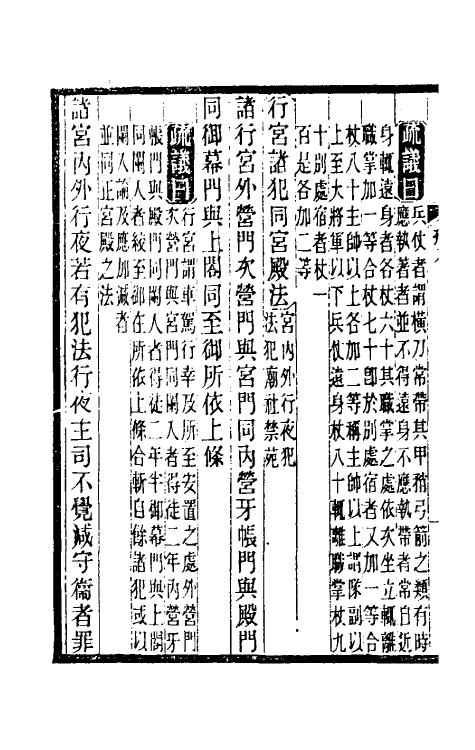 疏議曰
兵仗者謂橫刀常帶其甲矟弓箭之類有時
應執著者並不得遠身不應執帶者常自近
身輒遠身者各杖六十其職掌之處依次坐立輒離
職掌加一等合杖七十即於別處宿者又加一等合
杖八十主帥以上各加二等稱主帥以上謂隊副以
上至大將軍以下兵仗遠身杖八十輒離職掌杖九
十別處宿者杖一
百是各加二等
行宮諸犯同宮殿法
宮內外行夜犯
法犯廟社禁苑
諸行宮外營門次營門與宮門同內營牙帳門與殿門
同御幕門與上閤同至御所依上條
疏議曰
行宮謂車駕行幸及所至安置之處外營門
次營門與宮門同闌入者得徒二年內營門牙
帳門與殿門同闌入者得徒二年半御幕門與上閤
同闌入者絞至御在所依上條合斬自餘諸犯或以
闌入論及應加減者
並同正宮殿之法
諸宮內外行夜若有犯法行夜主司不覺減守衛者罪